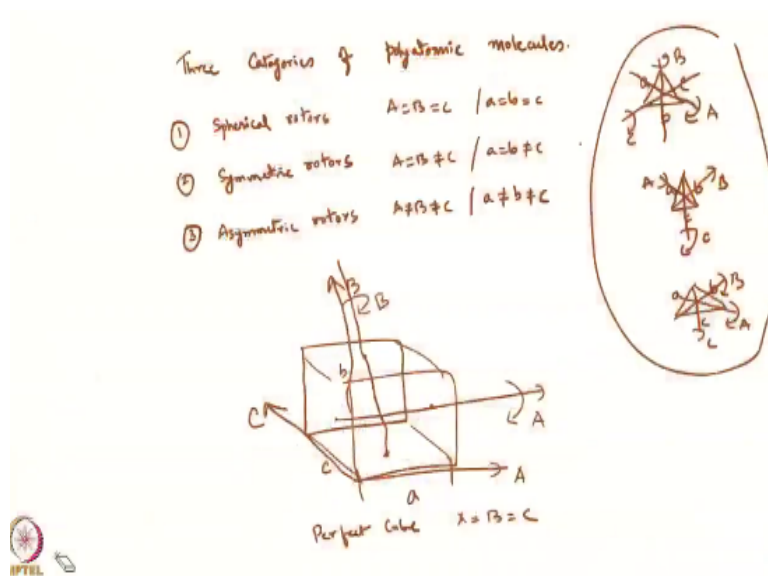 Three Categories of polyatomic molecules.
① Spherical rotors A=B=C / a=b=c
② Symmetric rotors A=B≠C / a=b≠c
③ Asymmetric rotors A≠B≠C / a≠b≠c
a B c
C b A
A a b B
c
C
a b B
c A
C
B
B
b
C
A
c
A
a
Perfect Cube A=B=C
NPTEL